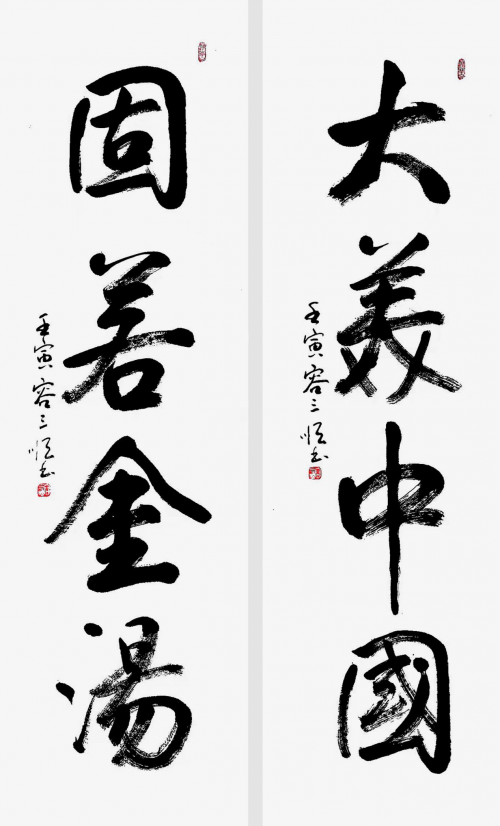 大美中國
壬寅容三恆书
固若金湯
壬寅容三恆书